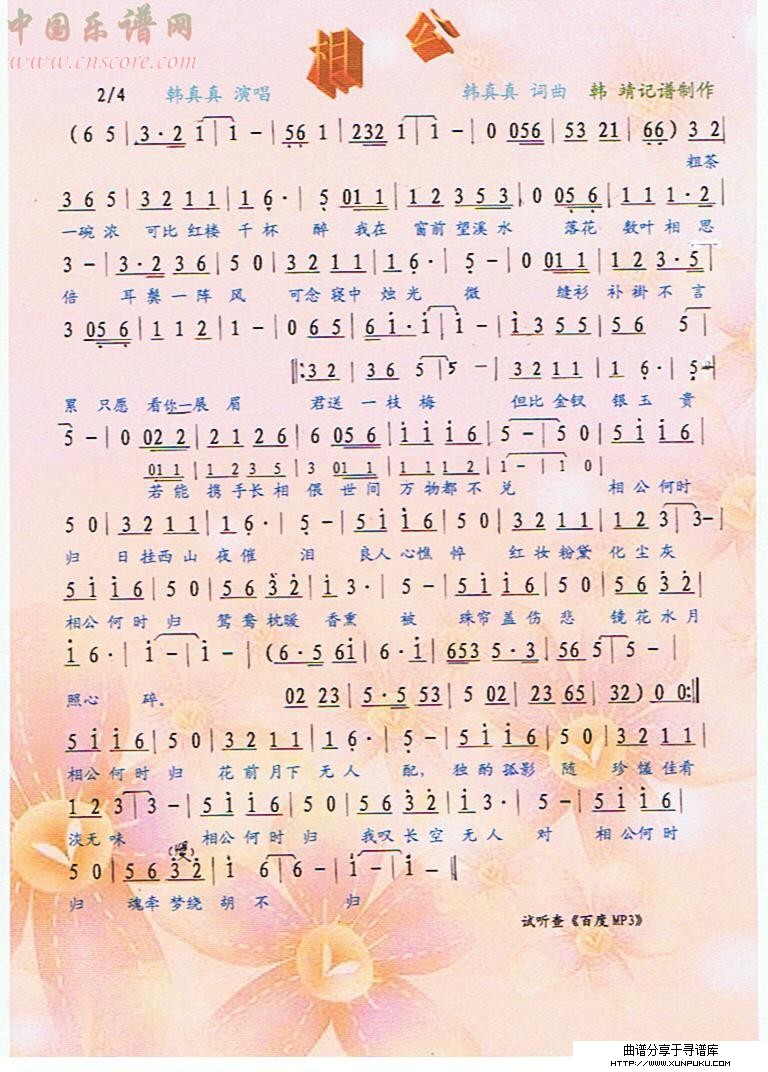 中国乐谱网
www.cnscore.com
相公
2/4 韩真真 演唱 韩真真 词曲 韩 靖记谱制作
(6 5 | 3·2 1 | 1 - | 56 1 | 232 1 | 1 - | 0 056 | 53 21 | 66) 3 2
粗茶
3 6 5 | 3 2 1 1 | 1 6· | 5 01 1 | 1 2 3 5 3 | 0 05 6 | 1 1 1·2
一碗浓 可比红楼 千杯 醉 我在 窗前望溪水 落花 数叶相思
3 - | 3·2 3 6 | 5 0 | 3 2 1 1 | 1 6· | 5 - | 0 01 1 | 1 2 3·5
倍 耳鬓一阵风 可念寝中 烛光 微 缝衫 补褂不言
3 05 6 | 1 1 2 | 1 - | 0 6 5 | 6 i·i | i - | i 3 5 5 | 5 6 5
‖: 3 2 | 3 6 5 | 5 - | 3 2 1 1 | 1 6· | 5
累 只愿 看你一展 眉 君送 一枝梅 但比金钗 银玉 贵
5 - | 0 02 2 | 2 1 2 6 | 6 05 6 | i i i 6 | 5 - | 5 0 | 5 i i 6
01 1 | 1 2 3 5 | 3 01 1 | 1 1 1 2 | 1 - | 1 0
若能 携手长相偎 世间 万物都不兑 相公何时
5 0 | 3 2 1 1 | 1 6· | 5 - | 5 i i 6 | 5 0 | 3 2 1 1 | 1 2 3 | 3 -
归 日挂西山 夜催 泪 良人心憔悴 红妆粉黛 化尘灰
5 i i 6 | 5 0 | 5 6 3 2 | i 3· | 5 - | 5 i i 6 | 5 0 | 5 6 3 2
相公何时归 鸳鸯枕暖 香熏 被 珠帘盖伤悲 镜花水月
i 6· | i - | i - | (6·5 6i | 6·i | 653 5·3 | 56 5 | 5 - |
02 23 | 5·5 53 | 5 02 | 23 65 | 32) 0 0 :‖
照心 碎。
5 i i 6 | 5 0 | 3 2 1 1 | 1 6· | 5 - | 5 i i 6 | 5 0 | 3 2 1 1
相公何时归 花前月下 无人 配, 独酌孤影 随 珍馐佳肴
1 2 3 | 3 - | 5 i i 6 | 5 0 | 5 6 3 2 | i 3· | 5 - | 5 i i 6
淡无味 相公何时归 我叹长空 无人 对 相公何时
(慢)
5 0 | 5 6 3 2 | i 6 | 6 - | i - | i - ‖
归 魂牵梦绕 胡不 归
试听查《百度MP3》
曲谱分享于寻谱库
HTTP://WWW.XUNPUKU.COM